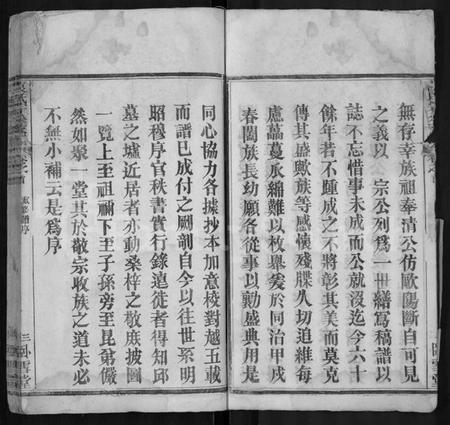 無存幸族祖奉清公仿歐陽斷自可見
之義以 宗公列爲一世繕寫稿譜以
誌不忘惜事未成而公就沒迄今六十
餘年若不踵成之不將彰其美而莫克
傳其盛歟族等感懷殘牒久切追維每
慮蕌蔓承綿難以枚舉爰於同治甲戌
春闔族長幼願各從事以勷盛典用是
同心協力各據抄本加意校對越五載
而譜巳成付之剞劂自今以往世系明
昭穆序官秩書實行錄遠徙者得知邱
墓之墟近居者亦動桑梓之敬庶披圖
一覽上至祖禰下至子孫旁至昆弟儼
然如聚一堂其於敬宗收族之道未必
不無小補云是爲序
卧雪堂